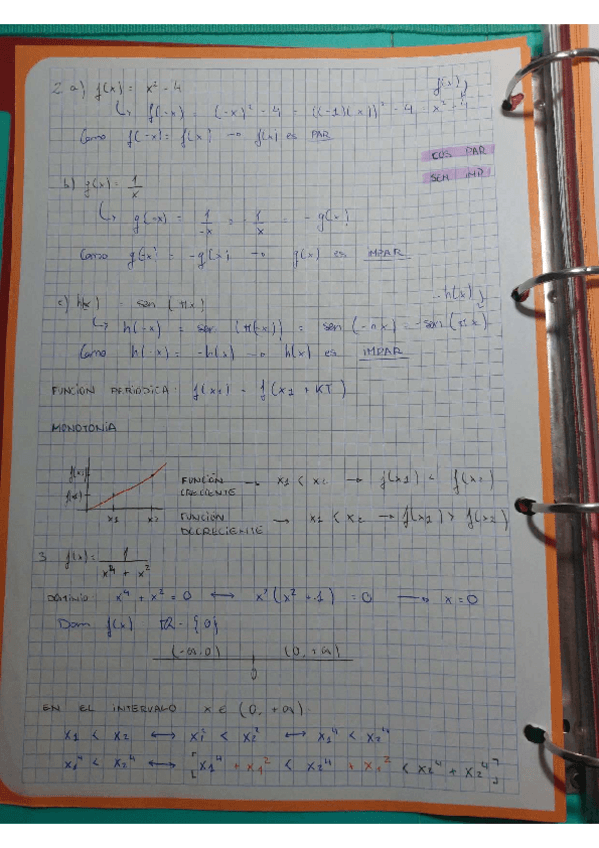 2. a) f(x) = x² - 4
f(x)
↳ f(-x) = (-x)² - 4 = ((-1)(x))² - 4 = x² - 4
Como f(-x) = f(x) → f(x) es PAR
COS PAR
SEN IMP
b) g(x) = 1/x
↳ g(-x) = 1/-x = - 1/x = - g(x)
Como g(-x) = -g(x) → g(x) es IMPAR
c) h(x) = sen (πx)
-h(x)
↳ h(-x) = sen (π(-x)) = sen (-πx) = -sen (πx)
Como h(-x) = -h(x) → h(x) es IMPAR
FUNCIÓN PERIODICA: f(x1) = f(x1 + KT)
MONOTONÍA
FUNCIÓN CRECIENTE → x1 < x2 → f(x1) < f(x2)
FUNCIÓN DECRECIENTE → x1 < x2 → f(x1) > f(x2)
x1 x2
3. f(x) = 1/(x⁴ + x²)
DOMINIO: x⁴ + x² = 0 ↔ x²(x² + 1) = 0 → x = 0
Dom f(x) = R - {0}
(-∞, 0) (0, +∞)
0
EN EL INTERVALO x ∈ (0, +∞)
x1 < x2 ↔ x1² < x2² ↔ x1⁴ < x2⁴
x1⁴ < x2⁴ ↔ [x1⁴ + x1² < x2⁴ + x1² < x2⁴ + x2²]